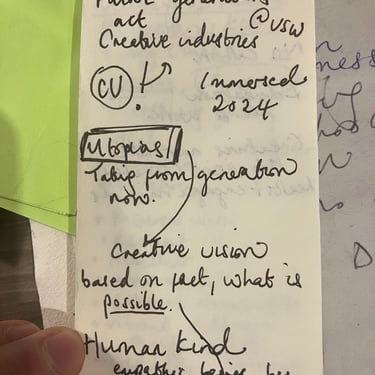 Future generations
act @USW
Creative industries
CU ! Immersed
2024
Utopias!
Taking from generation
now.
Creative vision
based on fact, what is
possible.
Human Kind